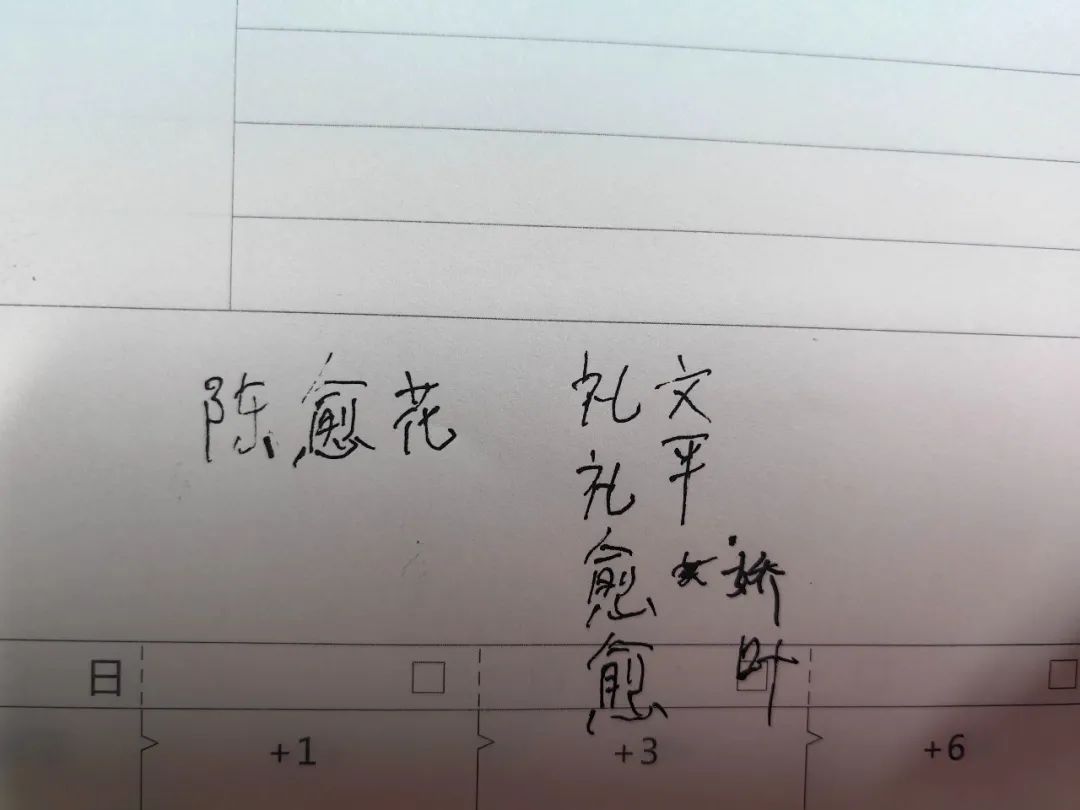 陈愈花
礼文
礼平
愈娇
愈叶
日
+1 +3 +6